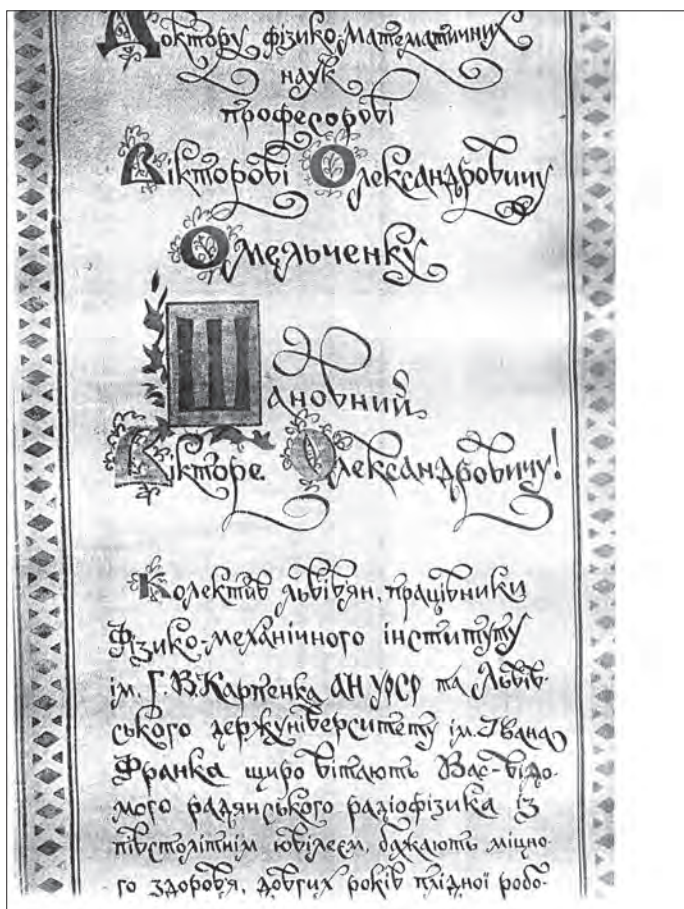 Доктору фізико-математичних
наук
професорові
Вікторові Олександровичу
Омельченку
Шановний
Вікторе Олександровичу!
Колектив львів'ян, працівники
Фізико-механічного інституту
ім. Г.В.Карпенка АН УРСР та Львів-
ського держуніверситету ім. Івана
Франка щиро вітають Вас-відо-
мого радянського радіофізика із
півстолітнім ювілеєм, бажають міцно-
го здоров'я, довгих років плідної робо-